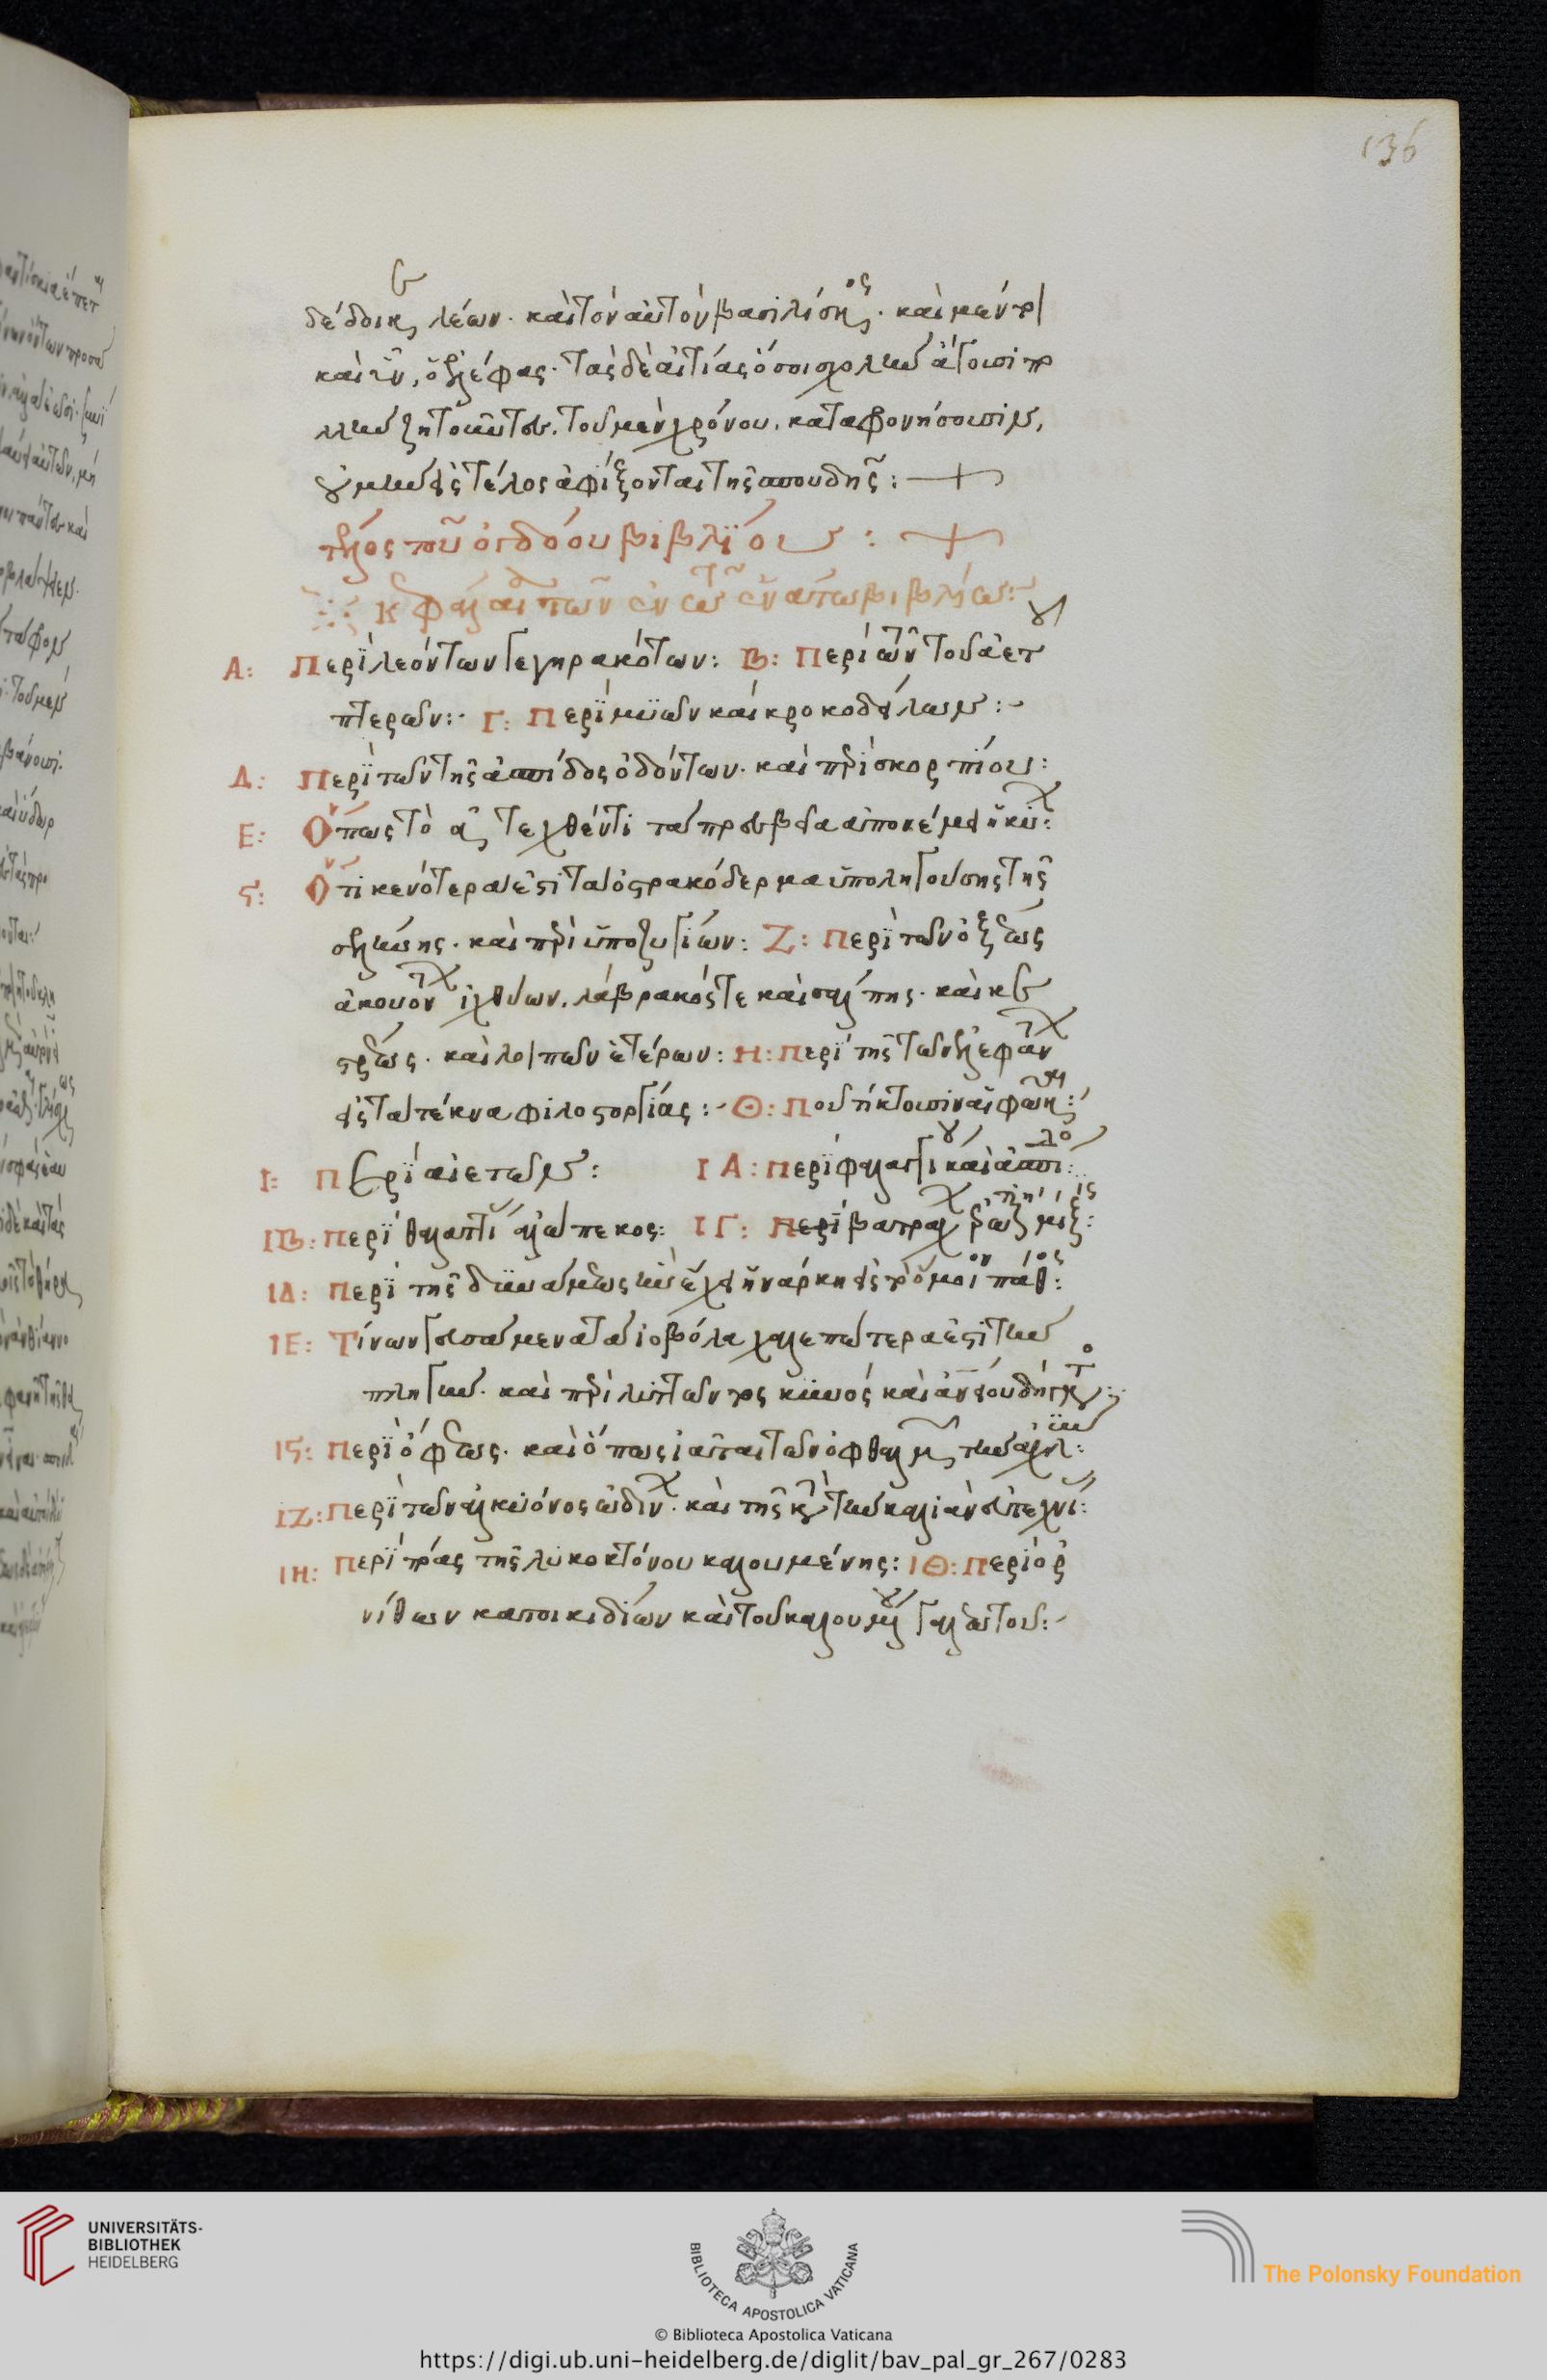 136
δέδοικε λέων. καὶ τὸν αὐτὸν βασιλίσκος. καὶ μέντοι
καὶ ὗν, ὁ ἐλέφας. τὰς δὲ αἰτίας ὅσοι σχολὴν ἄγουσι πο
λλὴν ζητοῦντες, τοῦ μὲν χρόνου, καταφρονήσουσιν,
οὐ μὴν εἰς τέλος ἀφίξονται τῆς σπουδῆς: +
τέλος τοῦ ὀγδόου βιβλίου: +
κεφάλαια τῶν ἐν τῷ ἐνάτῳ βιβλίῳ:
Α: Περὶ λεόντων γεγηρακότων: Β: Περὶ τῶν τοῦ ἀετοῦ
πτερῶν: Γ: Περὶ μυῶν καὶ κροκοδείλων:
Δ: Περὶ τῶν τῆς ἀσπίδος ὀδόντων. καὶ περὶ σκορπίου:
Ε: Ὅπως τὸ τεχθέν τι τῶν πρεσβεῖα ἀποκέμει κυ:
ϛ: Ὅτι κενότερα ἐστὶ τὰ ὀστρακόδερμα ὑποληγούσης τῆς
σελήνης. καὶ περὶ ὑποζυγίων: Ζ: Περὶ τῶν ὀξέως
ἀκουόντων ἰχθύων. λάβρακός τε καὶ σάλπης. καὶ κε
στρέως. καὶ λοιπῶν ἑτέρων: Η: Περὶ τῆς τῶν ἐλεφάντων
εἰς τὰ τέκνα φιλοστοργίας: Θ: Ποῦ τίκτουσιν αἱ φῶκαι:
Ι: Περὶ αἰετῶν: ΙΑ: Περὶ φαλαγγίου καὶ ἀσπίδος:
ΙΒ: Περὶ θαλαττίου ἀλώπεκος: ΙΓ: Περὶ βατράχων
ΙΔ: Περὶ τῆς δυνάμεως ἣν ἔχει ἡ νάρκη εἰς τὸ ὅμοιον πάθος:
ΙΕ: Τίνων γευσάμενα τὰ ἰοβόλα χαλεπώτερα ἐστὶ τὴν
πληγήν. καὶ περὶ λυττῶντος κυνὸς καὶ ἀνθρώπου δήγματος:
Ιϛ: Περὶ ὄφεως. καὶ ὅπως ἰᾶται τῶν ὀφθαλμῶν τὴν ἀχλύν:
ΙΖ: Περὶ τῶν ἀλκυόνος ὠδίνων. καὶ τῆς κατὰ τὴν καλιὰν εὐτεχνίας:
ΙΗ: Περὶ πόας τῆς λυκοκτόνου καλουμένης: ΙΘ: Περὶ ὀρ
νίθων κατοικιδίων καὶ τοῦ καλουμένου γαλεώτου:
UNIVERSITÄTS-
BIBLIOTHEK
HEIDELBERG
BIBLIOTECA APOSTOLICA VATICANA
The Polonsky Foundation
© Biblioteca Apostolica Vaticana
https://digi.ub.uni-heidelberg.de/diglit/bav_pal_gr_267/0283